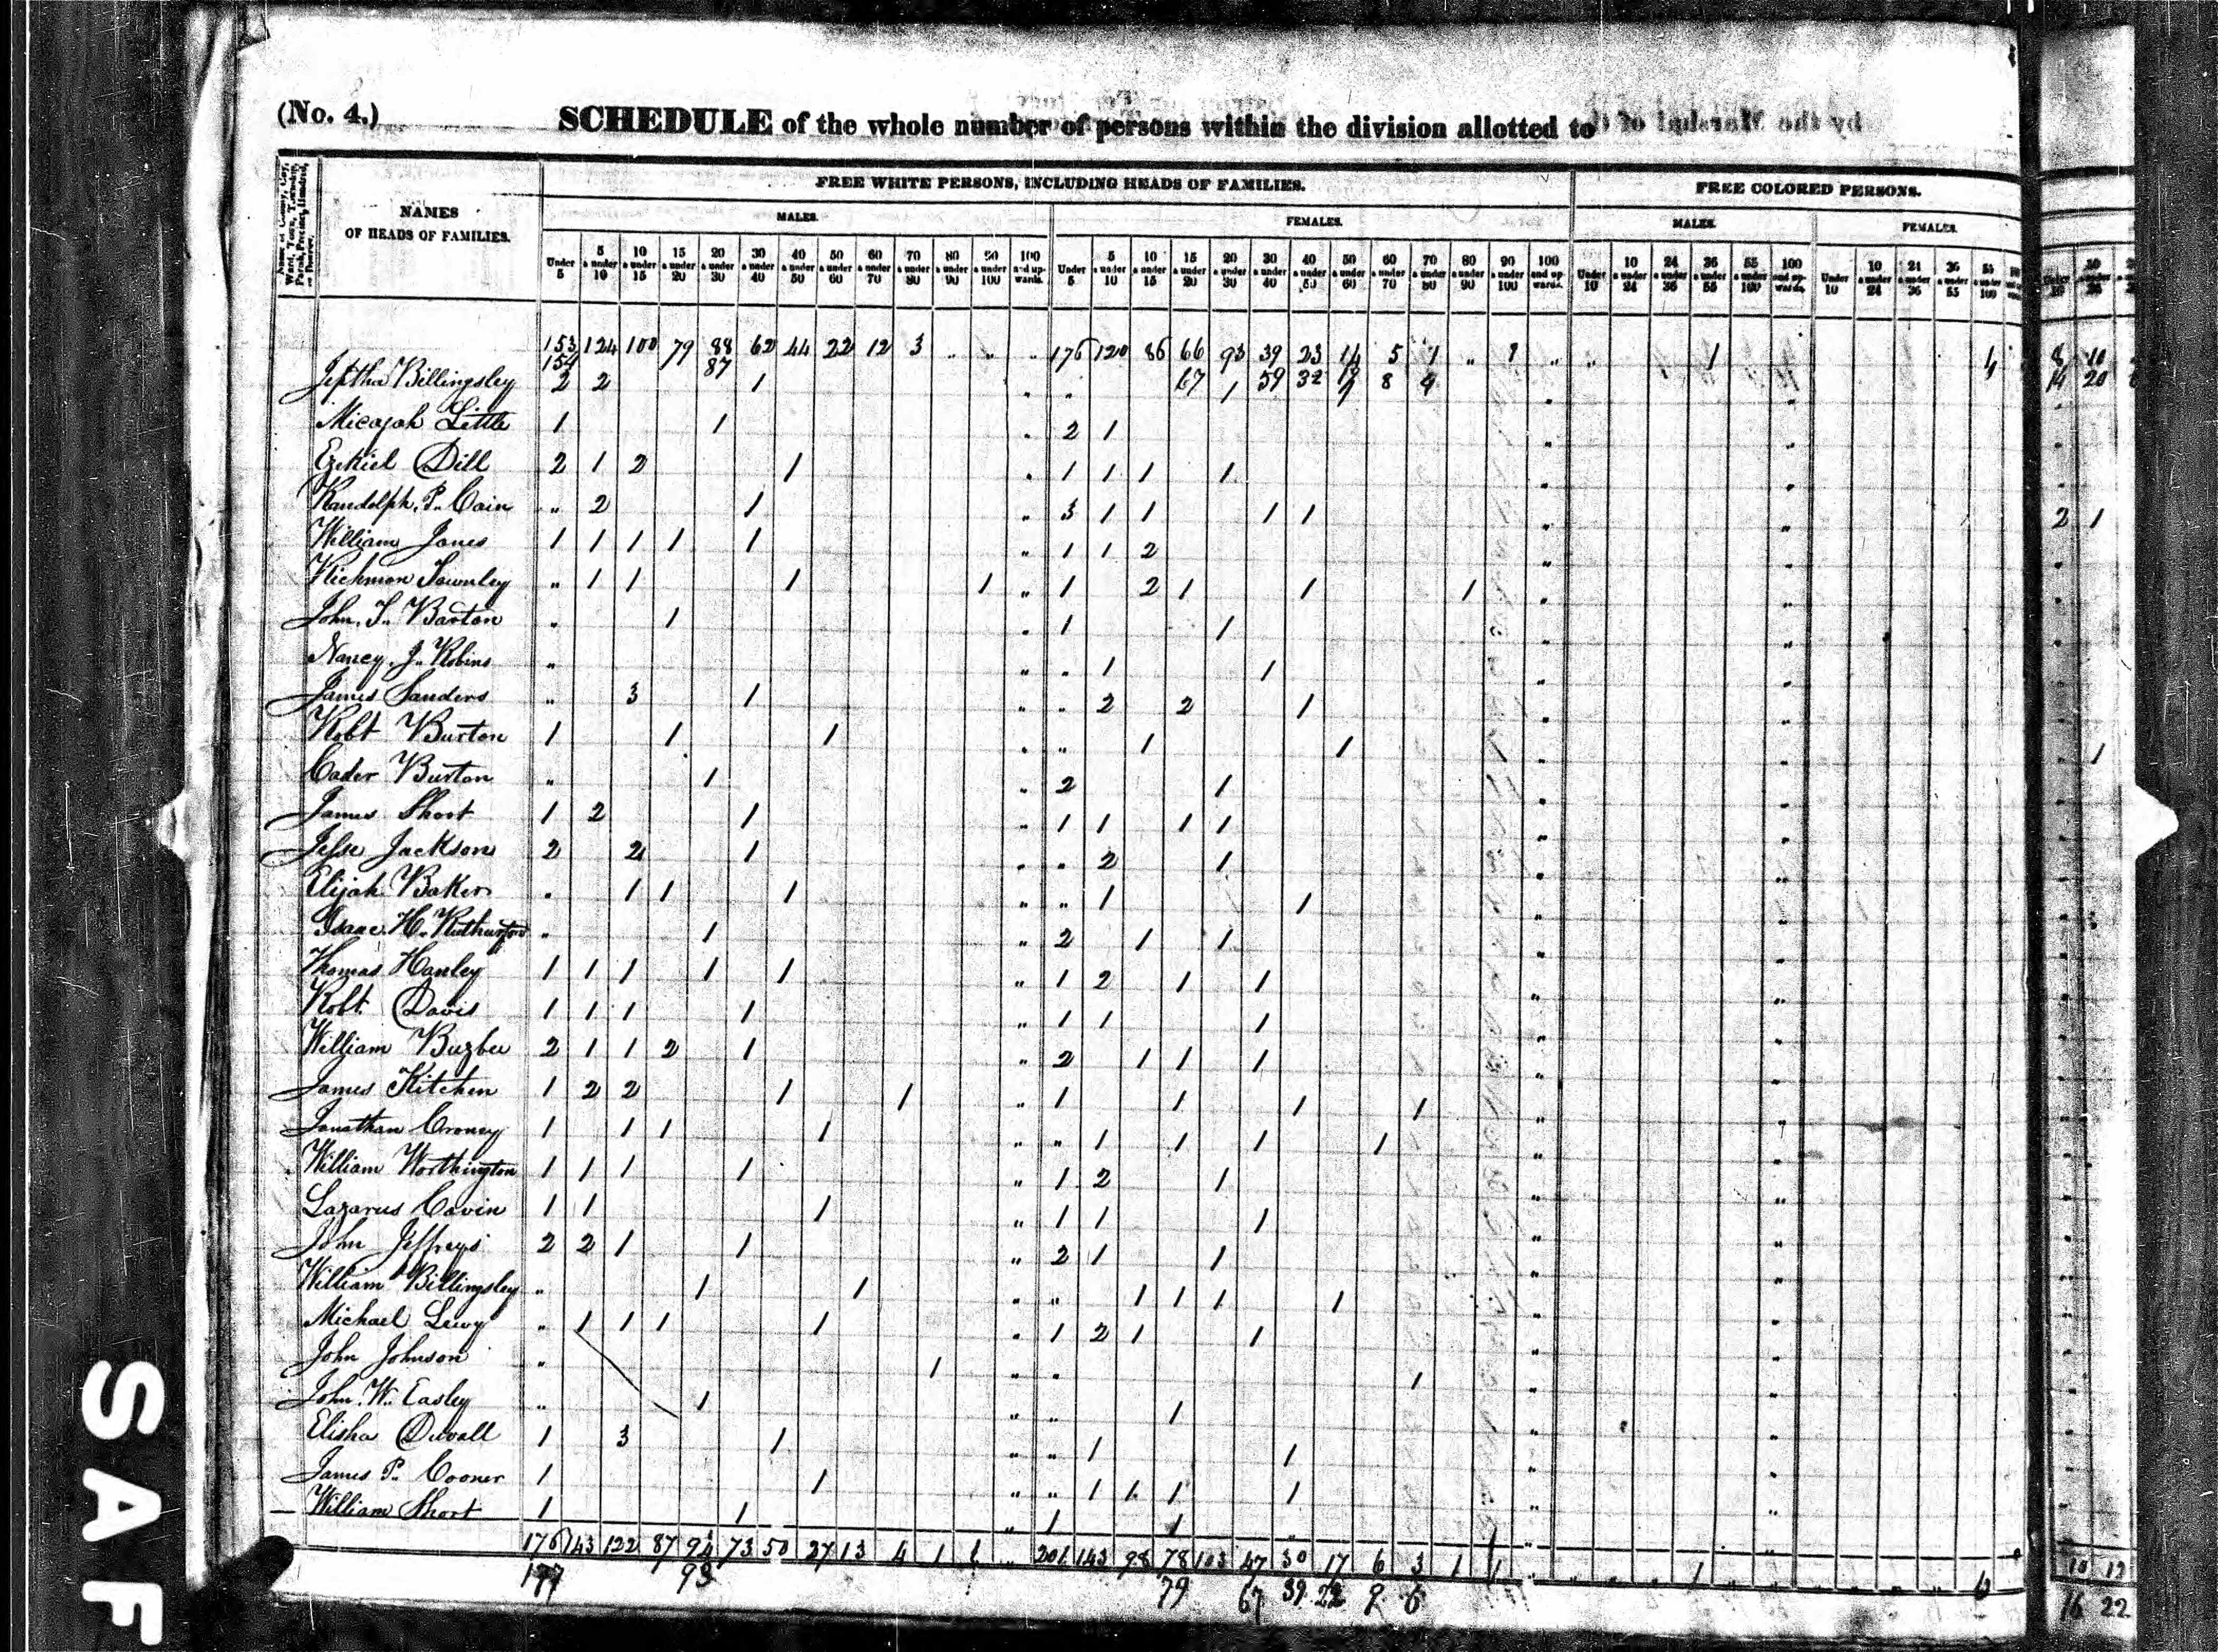 (No. 4.) SCHEDULE of the whole number of persons within the division allotted to
FREE WHITE PERSONS, INCLUDING HEADS OF FAMILIES. FREE COLORED PERSONS.
NAMES OF HEADS OF FAMILIES. MALES. FEMALES. MALES. FEMALES.
Under 5 5 & under 10 10 & under 15 15 & under 20 20 & under 30 30 & under 40 40 & under 50 50 & under 60 60 & under 70 70 & under 80 80 & under 90 90 & under 100 100 and upwards. Under 5 5 & under 10 10 & under 15 15 & under 20 20 & under 30 30 & under 40 40 & under 50 50 & under 60 60 & under 70 70 & under 80 80 & under 90 90 & under 100 100 and upwards. Under 10 10 & under 24 24 & under 36 36 & under 55 55 & under 100 100 and upwards. Under 10 10 & under 24 24 & under 36 36 & under 55 55 & under 100
153 124 100 79 88 62 44 22 12 3 " " " 176 120 86 66 93 39 23 14 5 1 " " 1 8 10
154 87 67 59 32 8 9 14 20
Jeptha Billingsley 2 2 1 1
Micajah Little 1 1 2 1
Ezekiel Dill 2 1 2 1 1 1 1 1
Randolph P. Cain " 2 1 3 1 1 1 1 2 1
William Jones 1 1 1 1 1 1 1 2
Richmon Townley " 1 1 1 1 1 2 1 1 1
John T. Barton " 1 1 1
Nancy J. Robins " 1 1
James Sanders " 3 1 2 2 1
Robt Burton 1 1 1 1 1 1
Cader Burton " 1 2 1
James Short 1 2 1 1 1 1 1
Jesse Jackson 2 2 1 2 1
Elijah Baker 1 1 1 1 1
Isaac H. " 1 2 1 1
Thomas Hanley 1 1 1 1 1 1 2 1 1
Robt. Davis 1 1 1 1 1 1 1
William Buzbee 2 1 1 2 1 2 1 1 1
James Kitchen 1 2 2 1 1 1 1 1 1
Jonathan Croney 1 1 1 1 1 1 1 1
William Worthington 1 1 1 1 1 2 1
Lazarus Cavin 1 1 1 1 1 1
John Jeffreys 2 2 1 1 2 1 1
William Billingsley " 1 1 1 1 1 1
Michael " 1 1 1 1 1 2 1 1
John Johnson " 1 1
John W. Easley " 1 1
Elisha Duvall 1 3 1 1 1
James P. Cooner 1 1 1 1 1 1
William Short 1 1 1 1
176 143 122 87 94 73 50 27 13 4 1 1 " 201 143 98 78 103 47 30 17 6 3 1 1 1 6 10 12
177 93 79 67 39 22 9 6 16 22
SAF